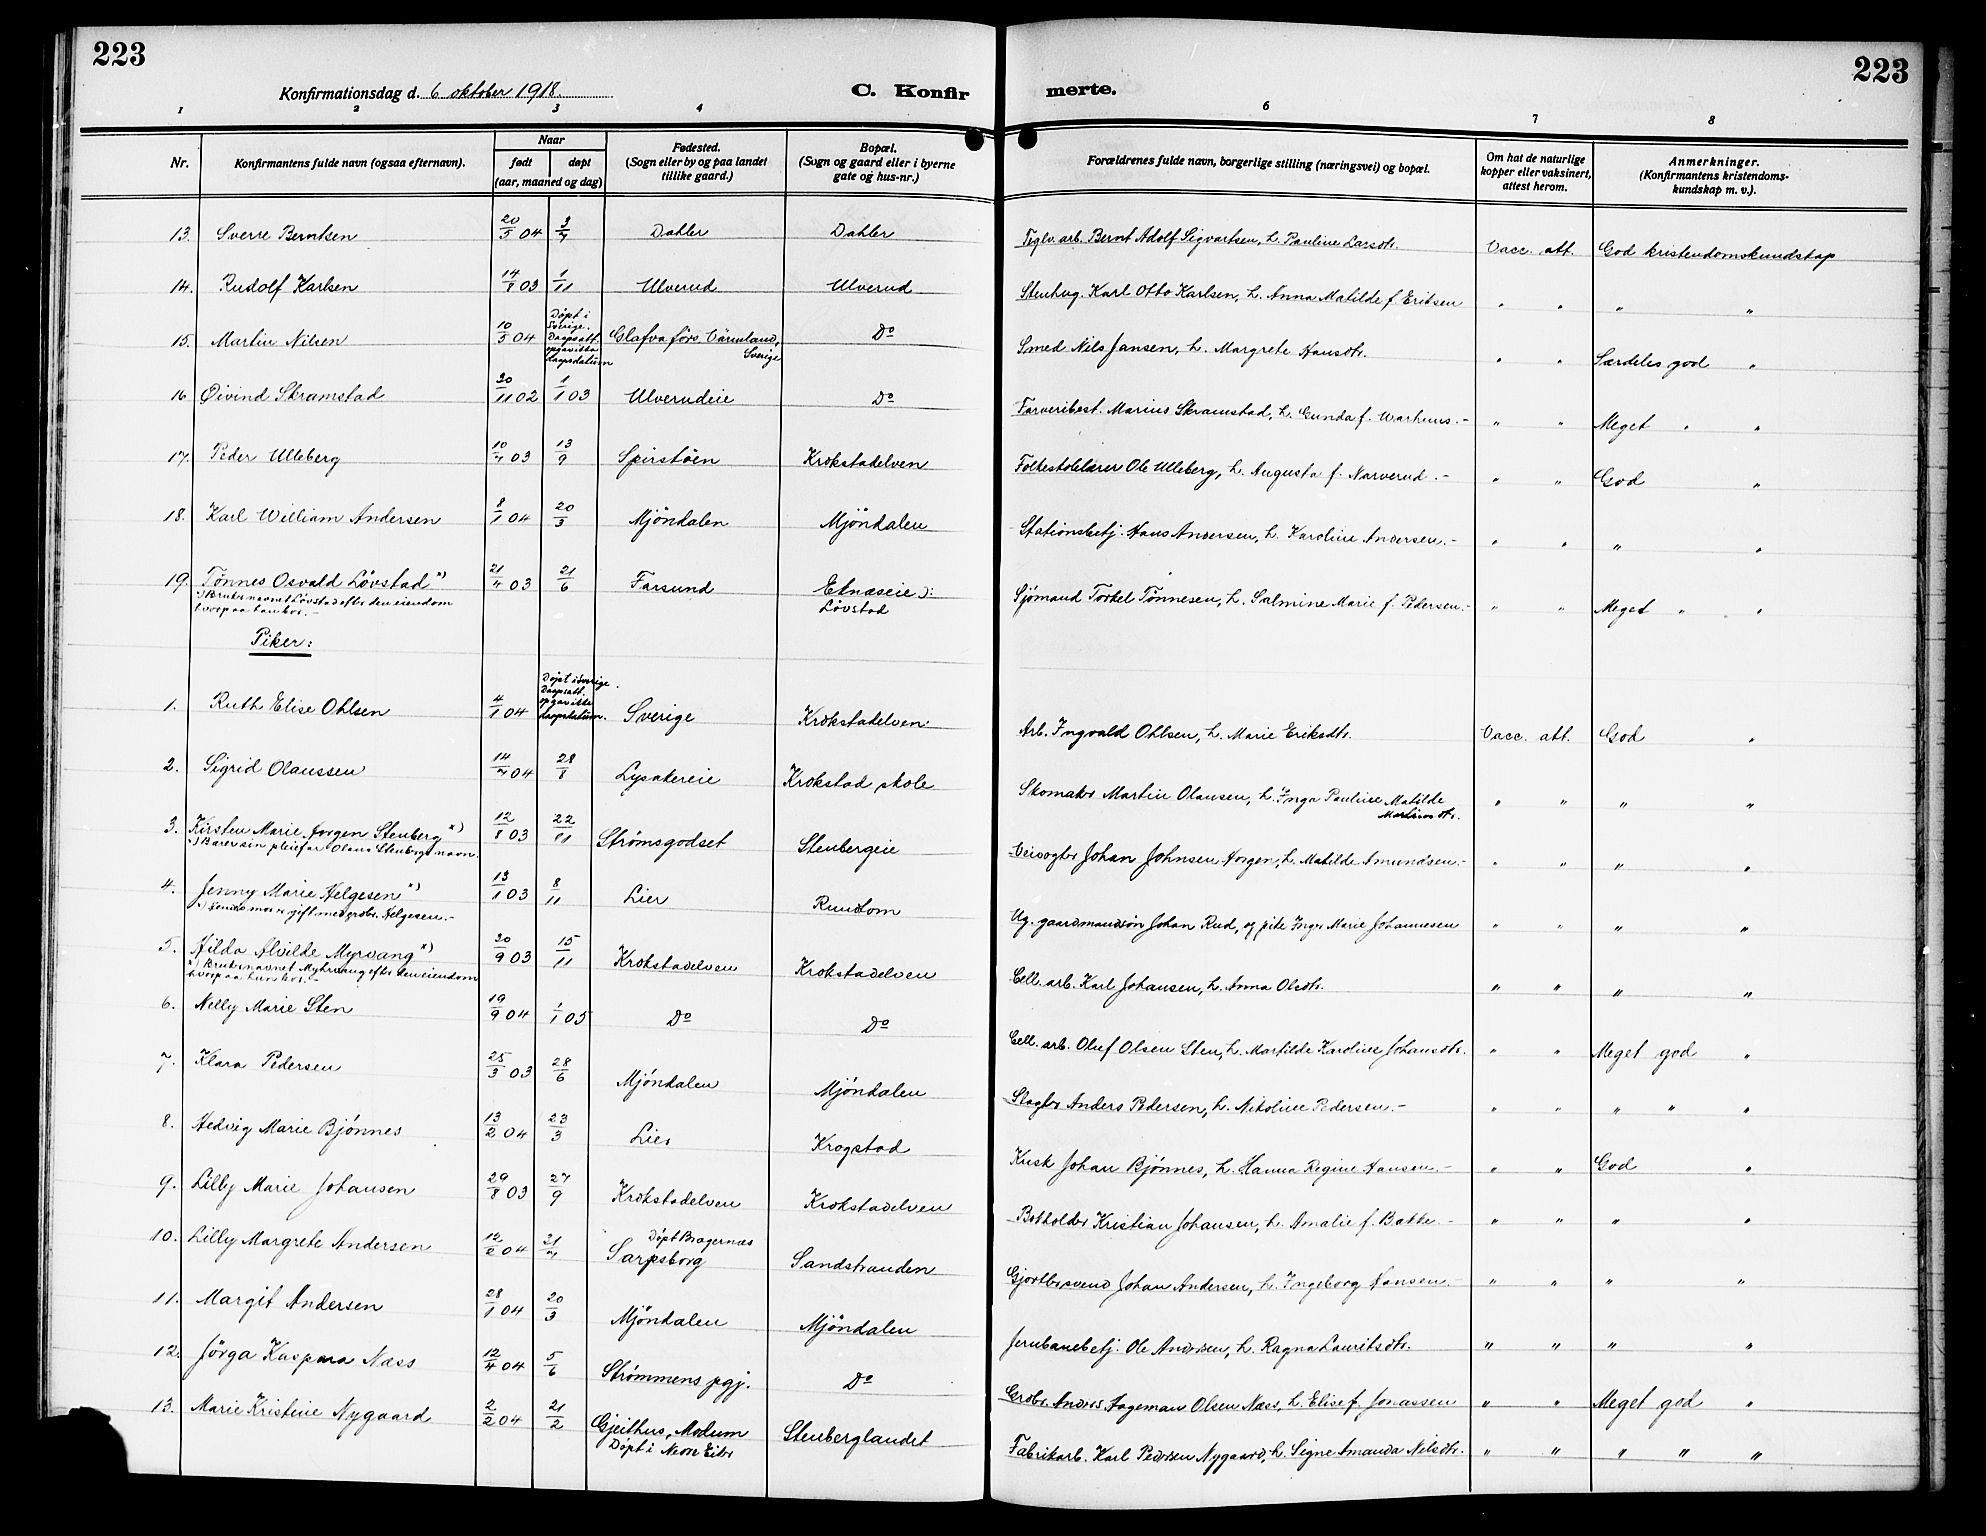 223
223
Konfirmationsdag d. 6 oktober 1918.
C. Konfirmerte.
1 2 3 4 6 7 8
Nr. | Konfirmantens fulde navn (ogsaa efternavn). | Naar født døpt (aar, maaned og dag) | Fødested. (Sogn eller by og paa landet tillike gaard.) | Bopæl. (Sogn og gaard eller i byerne gate og hus-nr.) | Forældrenes fulde navn, borgerlige stilling (næringsvei) og bopæl. | Om hat de naturlige kopper eller vaksinert, attest herom. | Anmerkninger. (Konfirmantens kristendoms-kundskap m. v.).
13. Sverre Berntsen 20/5 04 3/7 Dahler Dahler Teglv. arb. Bernt Adolf Sigvartsen, h. Pauline Larsdtr. Vacc. att. God kristendomskundskap
14. Rudolf Karlsen 14/8 03 1/11 Ulverud Ulverud Stenhug. Karl Otto Karlsen, h. Anna Matilde f. Eriksen " " " "
15. Martin Nilsen 10/5 04 Døpt i Sverige. Daapsatt. opgav ikke daapsdatum Glafva førs. Värmland, Sverige Do Smed Nils Jansen, h. Margrete Hansdtr. " " Særdeles god "
16. Øivind Skramstad 30/11 02 1/1 03 Ulverudeie Do Farveribest. Marius Skramstad, h. Gunda f. Warhuus.- " " Meget " "
17. Peder Ulleberg 10/7 03 13/9 Spirstöen Krokstadelven Folkeskolelærer Ole Ulleberg, h. Augusta f. Narverud.- " " God "
18. Karl William Andersen 8/1 04 20/3 Mjöndalen Mjöndalen Stationsbetj. Hans Andersen, h. Karoline Andersen.- " " " "
19. Tønnes Osvald Løvstad x) 21/4 03 21/6 Farsund Eknæseie ɔ: Løvstad Sjømand Torkel Tønnesen, h. Salmine Marie f. Pedersen.- " " Meget " "
x) Bruker navnet Løvstad efter den eiendom hvorpaa han bor.-
Piker:
1. Ruth Elise Ohlsen 4/1 04 Døpt i Sverige. Daapsatt. opgav ikke daapsdatum. Sverige Krokstadelven Arb. Ingvald Ohlsen, h. Marie Eriksdtr. Vacc. att. God "
2. Sigrid Olaussen 14/7 04 28/8 Lysakereie Krokstad skole Skomaker Martin Olausen, h. Inga Pauline Matilde Martinsdtr. " " " "
3. Kirsten Marie Horgen Stenberg x) 12/8 03 22/11 Strømsgodset Stenbergeie Veivogter Johan Johnsen Horgen, h. Matilde Amundsen.- " " " "
x) Bærer sin pleiefar Olaus Stenbergs navn.
4. Jenny Marie Helgesen x) 13/1 03 8/11 Lier Rundtom Ug. gaardmandssön Johan Rud, og pike Inger Marie Johannesen " " " "
x) Hendes mor er gift med grdbr. Helgesen.-
5. Hilda Alvilde Myrvang x) 20/9 03 15/11 Krokstadelven Krokstadelven Cell. arb. Karl Johansen, h. Anna Olsdtr. " " " "
x) Bruker navnet Myhrvang efter den eiendom hvorpaa hun bor.-
6. Nelly Marie Sten 19/9 04 1/1 05 Do Do Cell. arb. Oluf Olsen Sten, h. Martilde Karoline Johansdtr. " " Meget god "
7. Klara Pedersen 25/3 03 28/6 Mjöndalen Mjöndalen Slagter Anders Pedersen, h. Nikoline Pedersen.- " " " " "
8. Hedvig Marie Bjönnes 13/2 04 23/3 Lier Krogstad Kusk Johan Bjønnes, h. Hanna Regine Hansen.- " " God "
9. Lilly Marie Johansen 29/8 03 27/9 Krokstadelven Krokstadelven Bokholder Kristian Johansen, h. Amalie f. Bakke.- " " " "
10. Lilly Margrete Andersen 12/2 04 21/7 Døpt Bragernæs Sarpsborg Sandstranden Gjørtlersvend Johan Andersen, h. Ingeborg Hansen.- " " " "
11. Margit Andersen 28/1 04 20/3 Mjöndalen Mjöndalen Jernbanebetj. Ole Andersen, h. Ragna Lauritsdtr. " " " "
12. Jörga Kaspara Næss 12/4 04 5/6 Strømmens pgj. Do Grdbr. Anders Hageman Olsen Næss, h. Elise f. Jonassen " " Meget god "
13. Marie Kristine Nygaard 2/2 04 21/2 Gjeithus, Modum Døpt i Nedre Eiker Stenberglandet Fabrikarb. Karl Pedersen Nygaard, h. Signe Amanda Nilsdtr. " " " " "